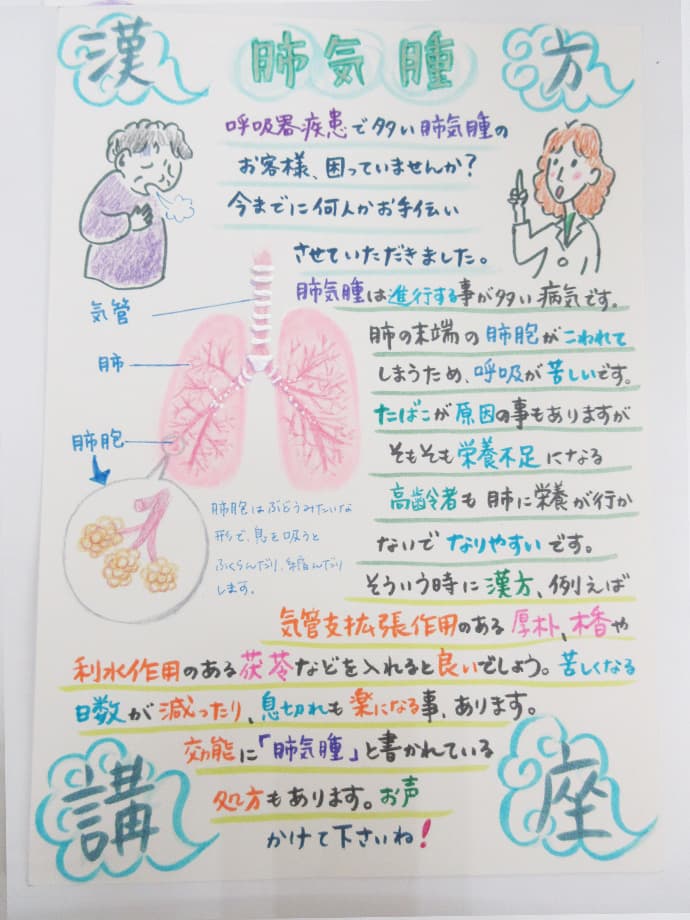 漢
肺気腫
方
呼吸器疾患で多い肺気腫の
お客様、困っていませんか?
今までに何人かお手伝い
させていただきました。
肺気腫は進行する事が多い病気です。
気管
肺の末端の肺胞がこわれて
肺
しまうため、呼吸が苦しいです。
たばこが原因の事もありますが
肺胞
そもそも栄養不足になる
高齢者も肺に栄養が行か
ないでなりやすいです。
肺胞はぶどうみたいな
形で、息を吸うと
ふくらんだり、縮んだり
します。
そういう時に漢方、例えば
気管支拡張作用のある厚朴、木香や
利水作用のある茯苓などを入れると良いでしょう。苦しくなる
日数が減ったり、息切れも楽になる事、あります。
効能に「肺気腫」と書かれている
処方もあります。お声
かけて下さいね!
講
座